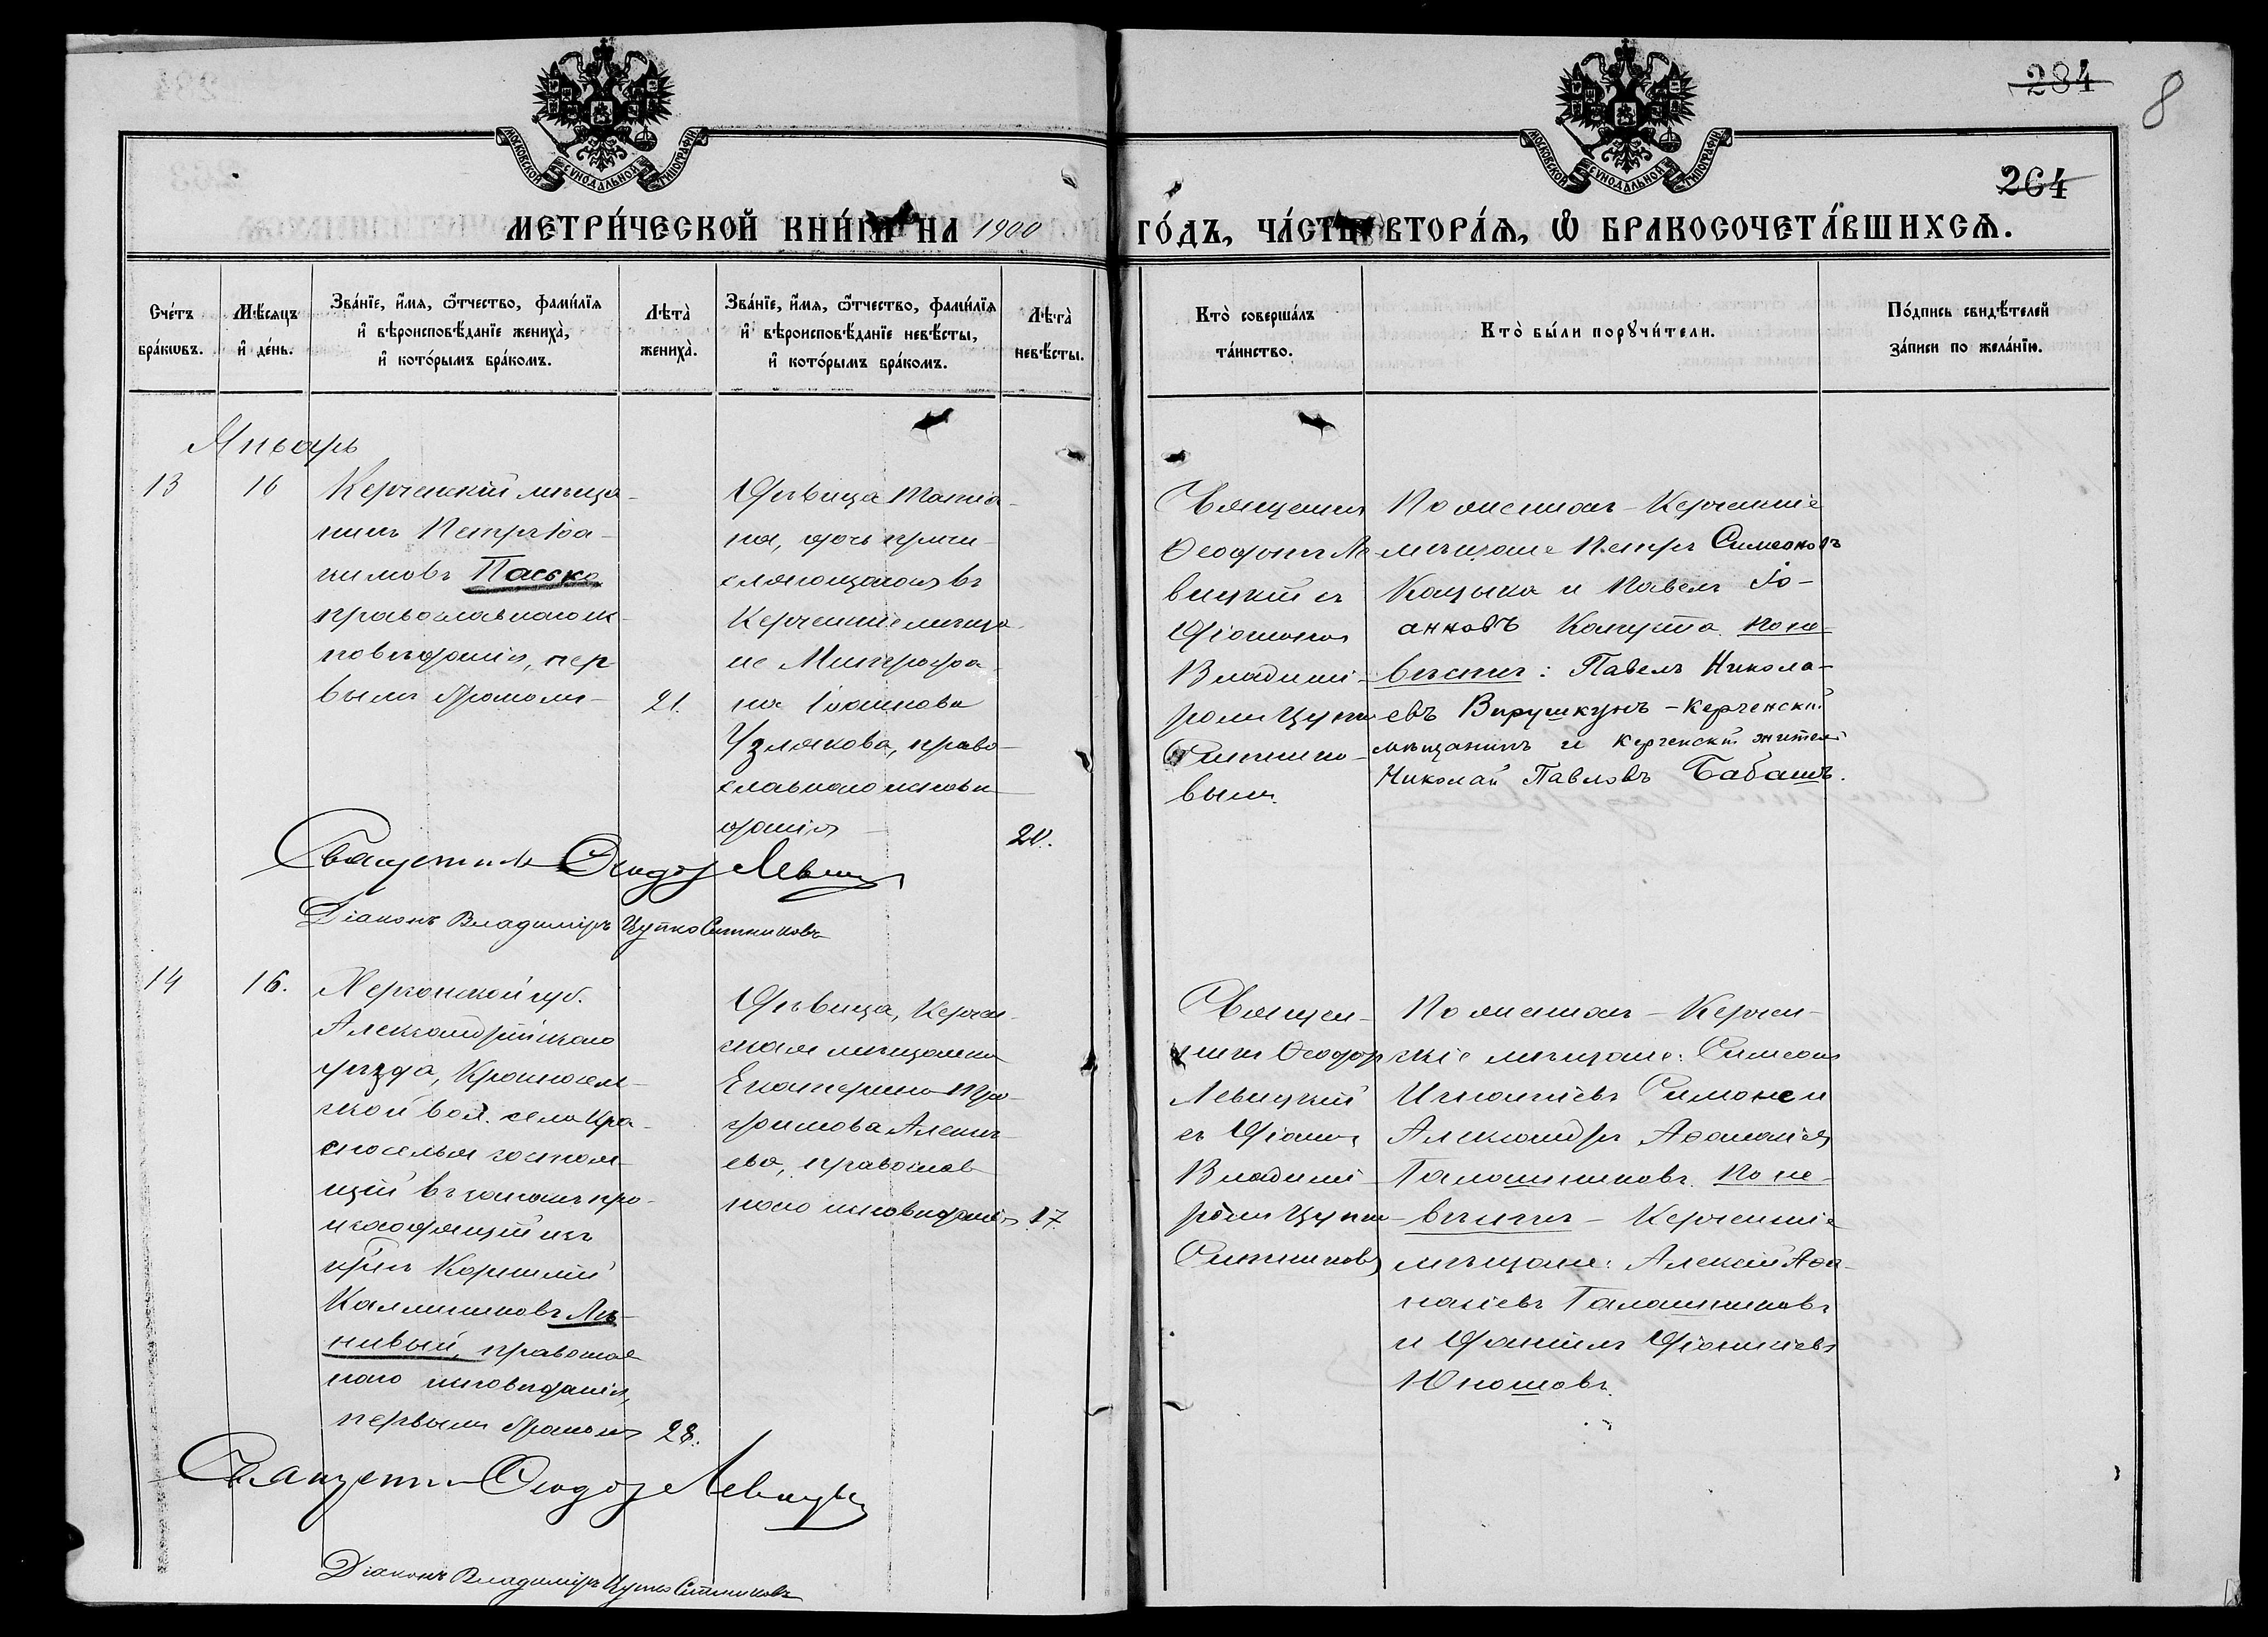 284
8
264
МОСКОВСКОЙ СѴНОДАЛЬНОЙ ТИПОГРАФІИ
МОСКОВСКОЙ СѴНОДАЛЬНОЙ ТИПОГРАФІИ
МЕТРИ́ЧЕСКОЙ КНИ́ГИ НА 1900
ГО́ДЪ, ЧА́СТЬ ВТОРА́Ѧ, Ѽ БРАКОСОЧЕТА́ВШИХСѦ.
Сче́тъ бра́кѡвъ.
Мѣ́сѧцъ и҆ де́нь.
Зва́нїе, и҆́мѧ, ѻ҆́тчество, фами́лїѧ
и҆ вѣроисповѣ́данїе жениха̀,
и҆ кото́рымъ бра́комъ.
Лѣта̀ жениха̀.
Зва́нїе, и҆́мѧ, ѻ҆́тчество, фами́лїѧ
и҆ вѣроисповѣ́данїе невѣ́сты,
и҆ кото́рымъ бра́комъ.
Лѣта̀ невѣ́сты.
Кто̀ соверша́лъ
та́инство.
Кто̀ бы́ли порꙋчи́тели.
По́дпись свидѣ́телей
за́писи по жела́нїю.
Январь
13
16
Керченскій мѣща-
нинъ Петръ Іоа-
кимовъ Пасько
православнаго ис-
повѣданія, пер-
вымъ бракомъ
21.
Дѣвица Татіа-
на, дочь причи-
сляющагося въ
Керченскіе мѣща-
не Митрофа-
на Іоаннова
Узлякова, право-
славнаго исповѣ-
данія
20.
Священникъ
Ѳеодоръ Ле-
вицкій съ
Діакономъ
Владимі-
ромъ Цупко
Ситнико-
вымъ.
По женихѣ - Керченскіе
мѣщане Петръ Симеоновъ
Кацыка и Павелъ Іо-
анновъ Капуста. По не-
вѣстѣ: Павелъ Никола-
евъ Вирушкунъ - Керченскій
мѣщанинъ и Керченскій житель
Николай Павловъ Бабашъ.
Священникъ Ѳеодоръ Левицкій
Діаконъ Владиміръ Цупко Ситниковъ
14
16.
Херсонской губ.
Александрійскаго
уѣзда, Красносель-
ской вол. села Кра-
сноселья состоя-
щій въ запасѣ про-
исходящій изъ
Корнилій
Каллиниковъ Лѣ-
нивый, православ
наго исповѣданія,
первымъ бракомъ
28.
Дѣвица, Керчен-
ская мѣщанка
Екатерина Тро-
фимова Алексѣ-
ева, православ
наго исповѣданія
17.
Священ-
никъ Ѳеодоръ
Левицкій
съ Діакон.
Владимі-
ромъ Цупко
Ситниковъ
По женихѣ - Керчен-
скіе мѣщане: Симеонъ
Игнатіевъ Симонен
Александръ Аѳанасіев
Галашниковъ. По не-
вѣстѣ - Керченскіе
мѣщане: Алексѣй Аѳа-
насіевъ Галашниковъ
и Даніилъ Діонисіевъ
Юношовъ.
Священникъ Ѳеодоръ Левицкій
Діаконъ Владиміръ Цупко Ситниковъ